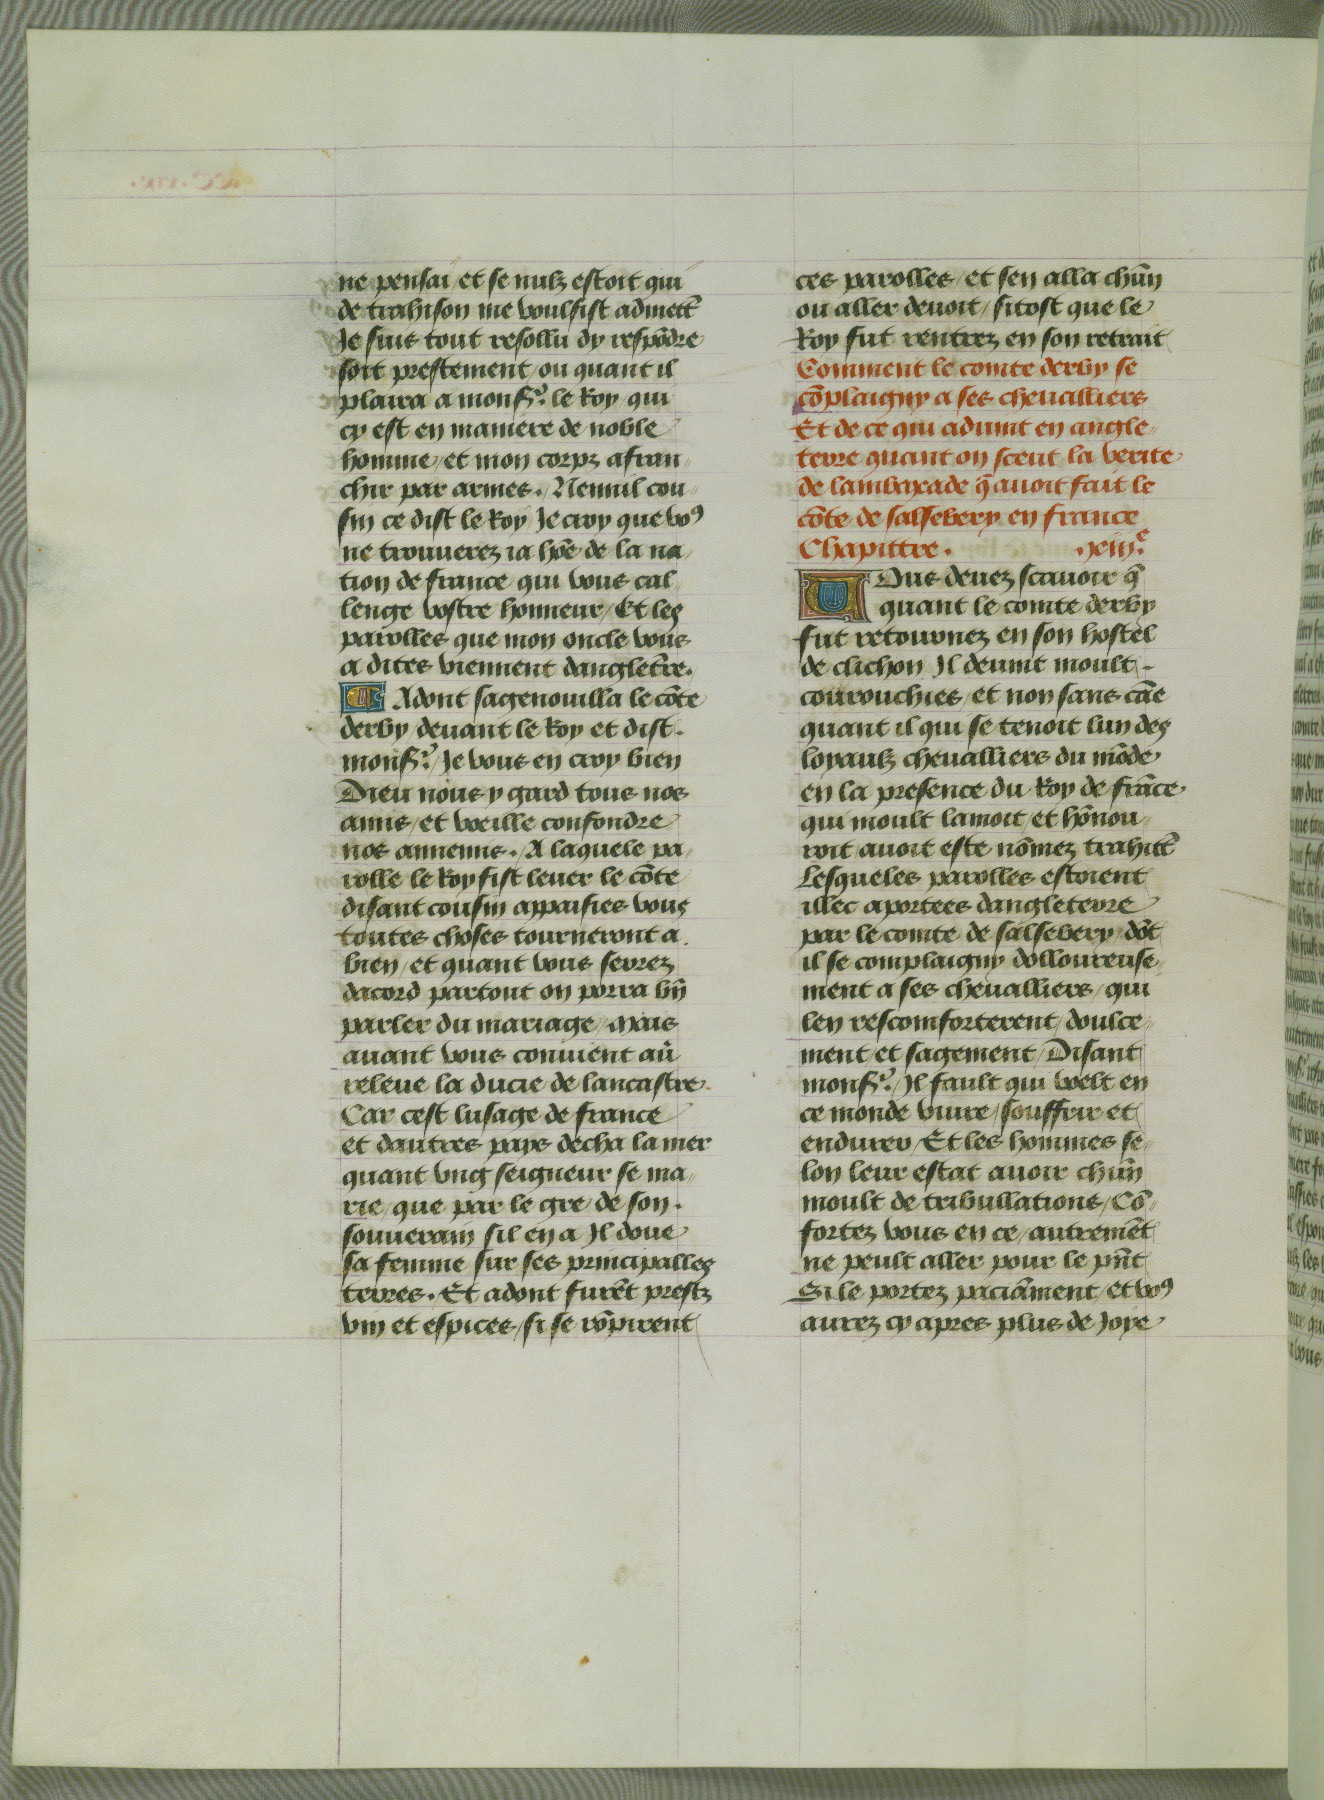 ne pensai / et se nulz estoit qui
de trahison me voulsist admettr̄
Je suis tout resollu dy respōdre
soit prestement / ou quant il
plaira a monsr̄. le Roy qui
cy est en maniere de noble
homme / et mon corpz afran
chir par armes. Nennil cou
sin ce dist le Roy Je croy que voꝰ
ne trouuerez ia hōe de la na
tion de france qui vous cal
lenge vostre honneur / Et les
parolles que mon oncle vous
a dites viennent dangletr̄e.
Adont sagenouilla le cōte
derby deuant le Roy et dist.
monsr̄. / Je vous en croy bien
Dieu nous y gard tous nos
amis / et voeille confondre
nos annemis. A laquele pa
rolle le Roy fist leuer le cōte
disant cousin appaisies vous
toutes choses tourneront a
bien / et quant vous serrez
dacord partout on porra bn̄
parler du mariage / mais
auant vous conuient aū
releue la ducie de lancastre.
Car cest lusage de france
et dautres pays decha la mer
quant vng seigneur se ma
rie / que par le gre de son.
souuerain sil en a Il doue
sa femme sur ses principalles
terres. Et adont furēt prestz
vin et espices / si se rōpirent
ces parolles / et sen alla chūn
ou aller deuoit / sitost que le
Roy fut rentrez en son retrait
Comment le comte derby se
cōplaigny a ses cheualliers
Et de ce qui aduint en angle
terre quant on sceut la verite
de lambaxade q̄ auoit fait le
cōte de salsebery en france
Chapittre. .xciii.e
Vous deuez scauoir q̄
quant le comte derby
fut retournez en son hostel
de clichon Il deuint moult.
courouchies / et non sans cāe
quant il qui se tenoit lun des
loyaulz cheualliers du mōde
en la presence du Roy de frāce
qui moult lamoit / et hōnou
roit / auoit este nōmez trahittr̄
Lesqueles parolles estoient
illec aportees dangleterre
par le comte de salsebery / dōt
il se complaigny dolloureuse
ment a ses cheualliers / qui
len rescomforterent / doulce
ment et sagement / Disant
monsr̄. / Il fault qui voelt en
ce monde viure / souffrir et
endurer / Et les hommes se
lon leur estat auoir chūn
moult de tribullations / Cō
fortez vous en ce / autremēt
ne peult aller pour le pn̄t
Si le portez paciāment / et voꝰ
aurez cy apres plus de Joye